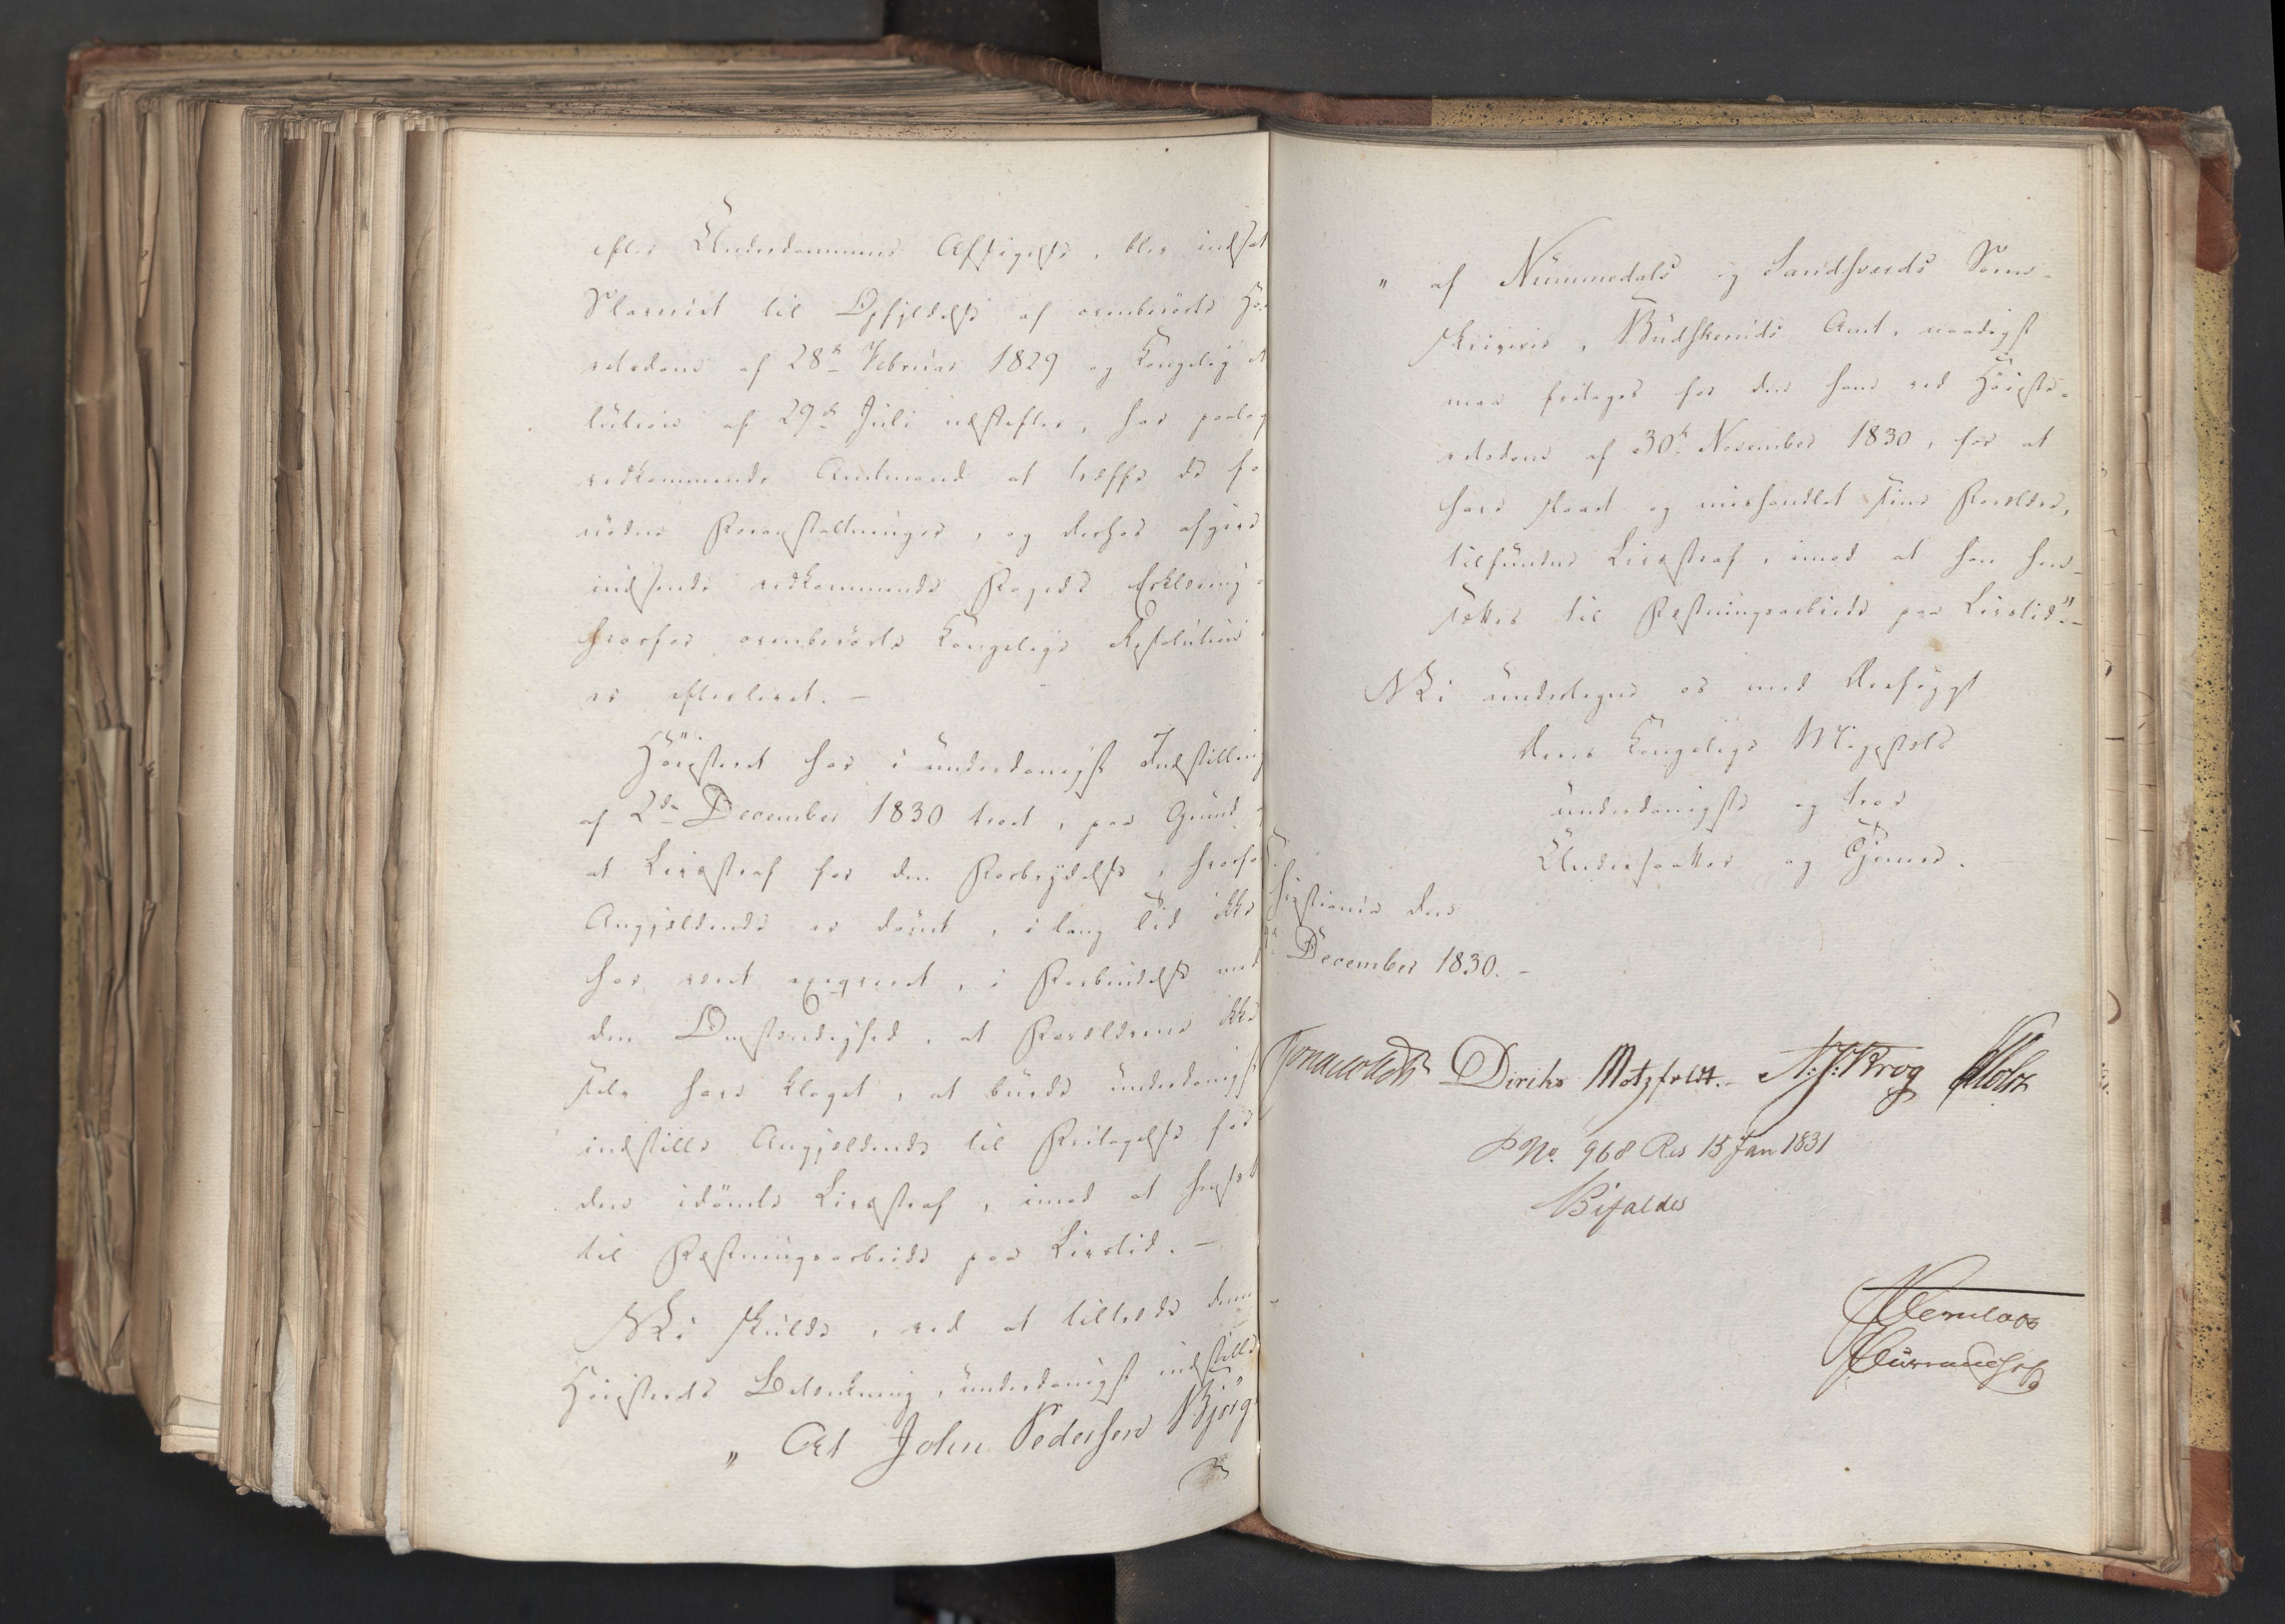 efter Underdommens Afsigelse, blev indsat
Slaveriet til Opfyldelse af ovenberörte Hö
retsdom af 28de Februar 1829 og Kongelig
lution af 29de Juli næstefter, har paalag
vedkommende Amtmand at træffe de fo
nödne Foranstaltninger, og derhos afgive
indsende vedkommende Fogeds Erklæring
hvorfor ovenberörte Kongelige Resolution
er efterlevet. –
Höiesteret har i underdanigst Indstilling
af 2den December 1830 troet, paa Grund
at Livsstraf for den Forbrydelse, hvorfor
Angjeldende er dömt, i lang Tid ikke
har vært exeqveret, i Forbindelse med
den Omstændighed, at Forældrene ikke
selv have klaget, at burde underdanigst
indstille Angjeldende til Fritagelse for
den idömte Livsstraf, imod at hensæt
til Fæstningsarbeide paa Livstid. –
Vi skulde, ved at tiltræde denn
Höiesterets Betænkning, underdanigst indstille
„ At John Pedersen Björge
„ af Nummedals og Sandsværds Soren-
skriverie, Budskeruds Amt, naadigst
maa fritages for den ham ved Höieste-
retsdom af 30te November 1830, for at
have slaaet og mishandlet sine Forældre,
tilfundne Livsstraf, imod at han hen-
sættes til Fæstningsarbeide paa Livstid". –
Vi undertegne os med dybeste
Deres Kongelige Majestæts
underdanigste og troe
Undersaatter og Tjenere.
Christiania den
December 1830. –
Jonas Collett Diriks Motzfeldt. – N. J. Krog Holst
P No. 968 Res 15 Jan 1831
Bifaldes